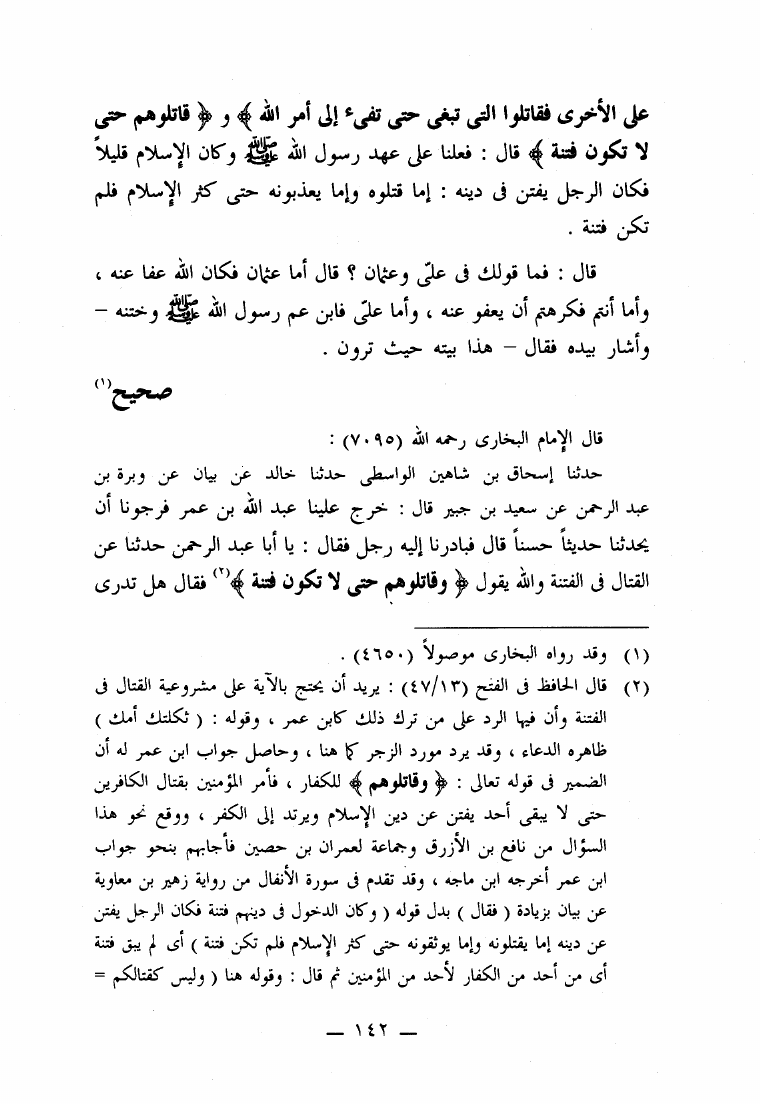 على الأخرى فقاتلوا التى تبغى حتى تفىء إلى أمر الله ﴾ و ﴿ قاتلوهم حتى
لا تكون فتنة ﴾ قال : فعلنا على عهد رسول الله ﷺ وكان الإسلام قليلاً
فكان الرجل يفتن فى دينه : إما قتلوه وإما يعذبونه حتى كثر الإسلام فلم
تكن فتنة .
قال : فما قولك فى علىّ وعثمان ؟ قال أما عثمان فكان الله عفا عنه ،
وأما أنتم فكرهتم أن يعفو عنه ، وأما علىّ فابن عم رسول الله ﷺ وختنه –
وأشار بيده فقال – هذا بيته حيث ترون .
صحيح(١)
قال الإمام البخارى رحمه الله (٧٠٩٥) :
حدثنا إسحاق بن شاهين الواسطى حدثنا خالد عن بيان عن وبرة بن
عبد الرحمن عن سعيد بن جبير قال : خرج علينا عبد الله بن عمر فرجونا أن
يحدثنا حديثاً حسناً قال فبادرنا إليه رجل فقال : يا أبا عبد الرحمن حدثنا عن
القتال فى الفتنة والله يقول ﴿ وقاتلوهم حتى لا تكون فتنة ﴾(٢) فقال هل تدرى
(١) وقد رواه البخارى موصولاً (٤٦٥٠) .
(٢) قال الحافظ فى الفتح (٤٧/١٣) : يريد أن يحتج بالآية على مشروعية القتال فى
الفتنة وأن فيها الرد على من ترك ذلك كابن عمر ، وقوله : ( ثكلتك أمك )
ظاهره الدعاء ، وقد يرد مورد الزجر كما هنا ، وحاصل جواب ابن عمر له أن
الضمير فى قوله تعالى : ﴿ وقاتلوهم ﴾ للكفار ، فأمر المؤمنين بقتال الكافرين
حتى لا يبقى أحد يفتن عن دين الإسلام ويرتد إلى الكفر ، ووقع نحو هذا
السؤال من نافع بن الأزرق وجماعة لعمران بن حصين فأجابهم بنحو جواب
ابن عمر أخرجه ابن ماجه ، وقد تقدم فى سورة الأنفال من رواية زهير بن معاوية
عن بيان بزيادة ( فقال ) بدل قوله ( وكان الدخول فى دينهم فتنة فكان الرجل يفتن
عن دينه إما يقتلونه وإما يوثقونه حتى كثر الإسلام فلم تكن فتنة ) أى لم يبق فتنة
أى من أحد من الكفار لأحد من المؤمنين ثم قال : وقوله هنا ( وليس كقتالكم =
— ١٤٢ —